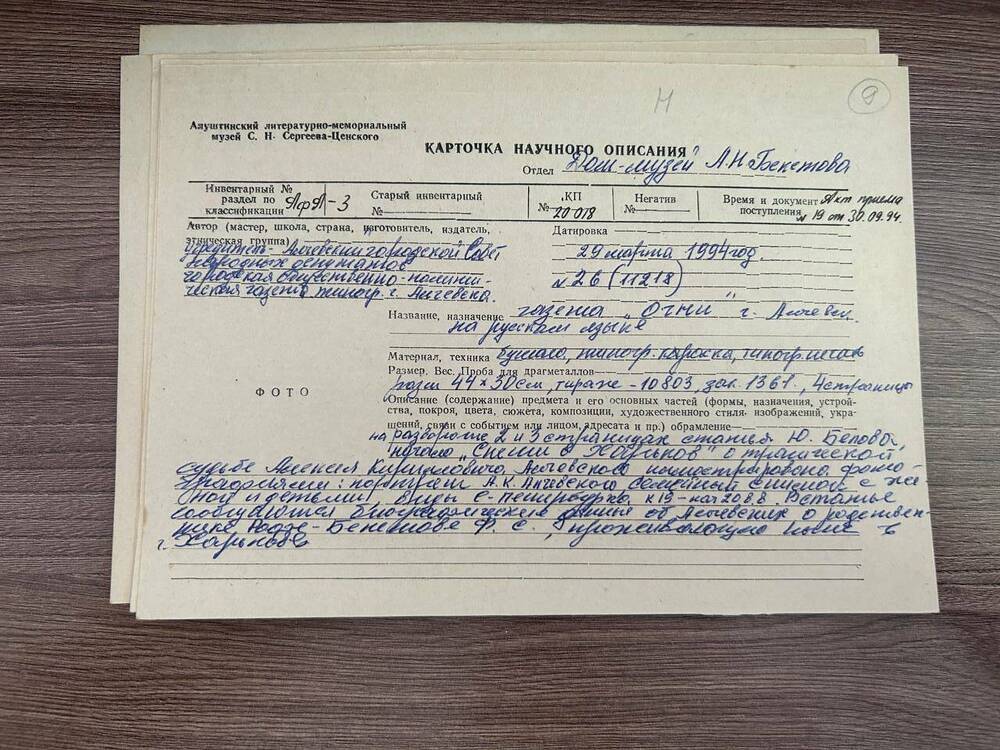 Н
9
Алуштинский литературно-мемориальный
музей С. Н. Сергеева-Ценского
КАРТОЧКА НАУЧНОГО ОПИСАНИЯ
Отдел Дом-музей А.Н Бекетова
Инвентарный №
раздел по
классификации АфА-3
Старый инвентарный
№
КП
№ 20 078
Негатив
№
Время и документ Акт приема
поступления № 19 от 30.09.94.
Автор (мастер, школа, страна, изготовитель, издатель,
этническая группа)
учредитель- Алчевский городской Совет
народных депутатов
городская общественно-полити-
ческая газета типогр. г. Алчевска.
Датировка
29 марта 1994 год.
№ 26 (11218)
Название, назначение газета „Огни" г. Алчевск.
на русском языке
Материал, техника бумага, типогр. краска, типогр. печать
Размер. Вес. Проба для драгметаллов
разм 44 × 30 см, тираж - 10803, зак. 1361., 4 страницы
ФОТО
Описание (содержание) предмета и его основных частей (формы, назначения, устрой-
ства, покроя, цвета, сюжета, композиции, художественного стиля изображений, укра-
шений, связи с событием или лицом, адресата и пр.) обрамление
на развороте 2 и 3 страницах статья Ю. Белова,
начало „ с Харьков" о трагической
судьбе Алексея Кирилловича Алчевского иллюстрирована фото-
графиями: портрет А.К Алчевского семейный снимок с же-
ной и детьми, виды С-петербурга к 19 - нач 20 в.в. В статье
сообщаются биографические данные об Алчевских о родствен-
Бекетове Ф. С., проживающую ныне в
г. Харькове